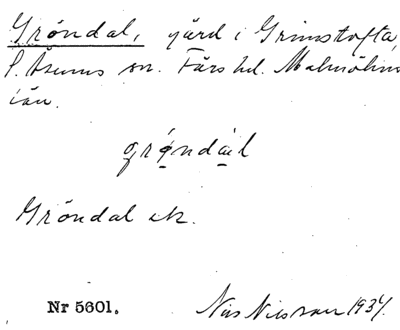 Gröndal, gård i Grimstofta,
S. Åsums sn. Färs hd. Malmöhus
län.
Gröndal ek.
Nr 5601. Nils Nilsson 1934.